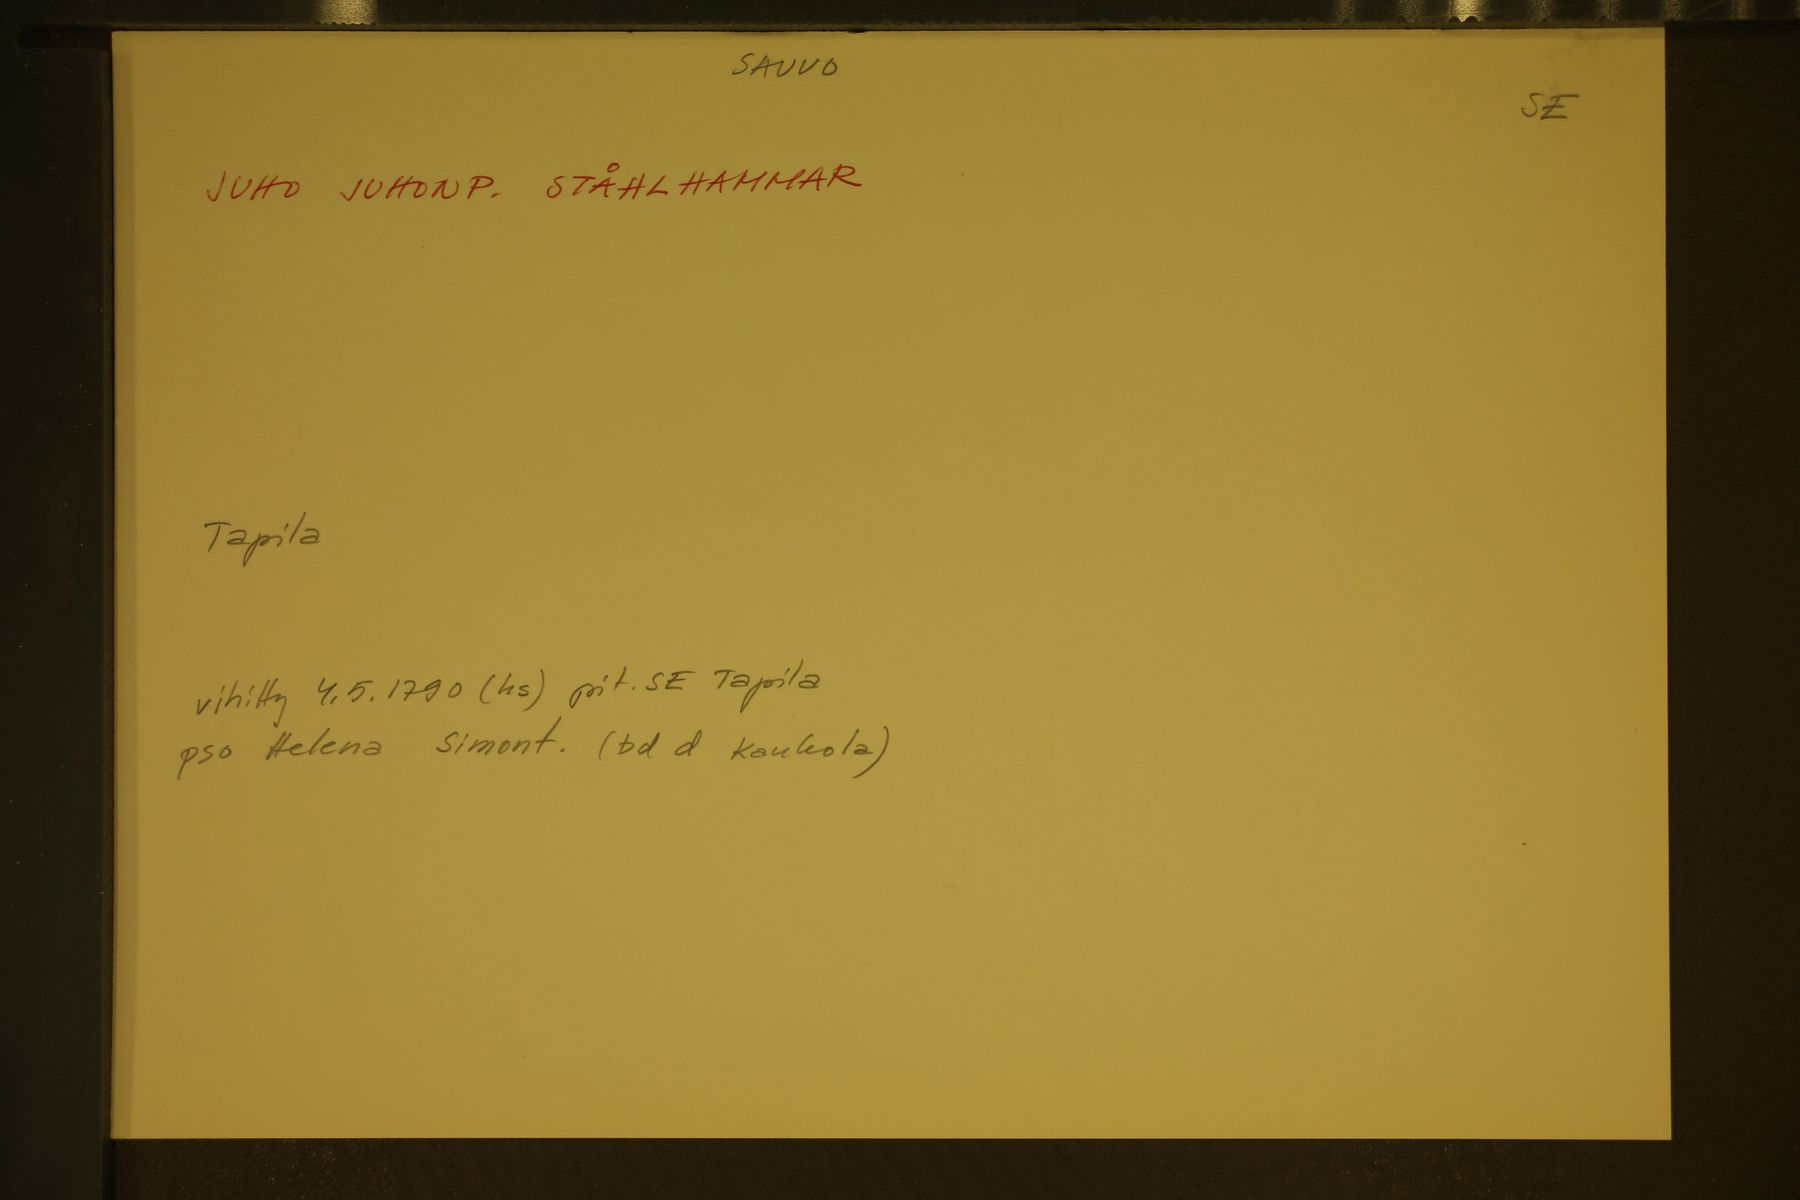 SAUVO
SE
JUHO JUHONP. STÅHLHAMMAR
Tapila
vihitty 4.5.1790 (hs) pit. SE Tapila
pso Helena Simont. (bd d Kaukola)